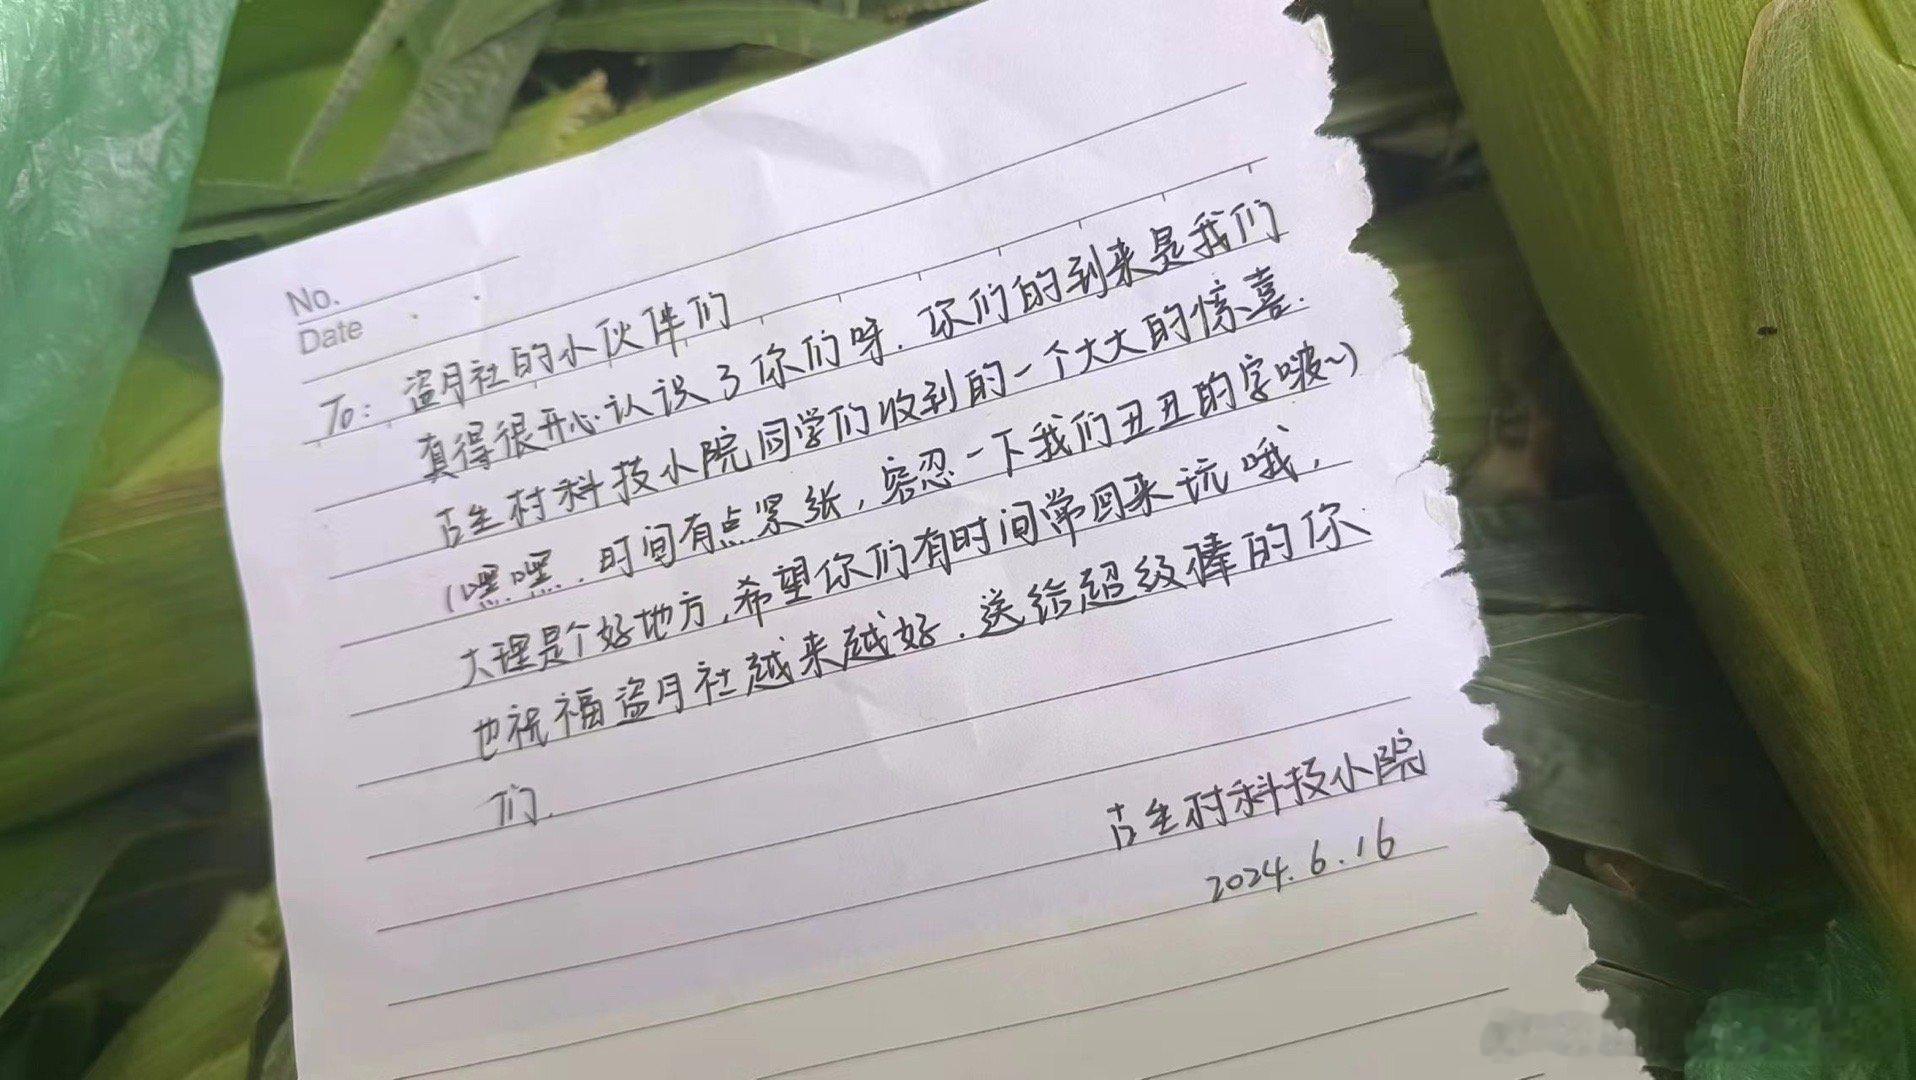 No.
Date
To: 盗月社的小伙伴们
真得很开心认识了你们呀. 你们的到来是我们
古生村科技小院同学们收到的一个大大的惊喜.
(嘿嘿..时间有点紧张, 容忍一下我们丑丑的字啵~)
大理是个好地方, 希望你们有时间常回来玩哦,
也祝福盗月社越来越好. 送给超级棒的你
们.
古生村科技小院
2024.6.16